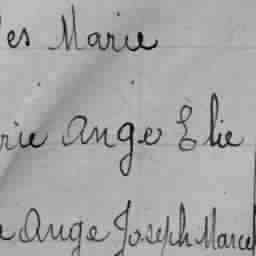 les Marie
rie Ange Elie
e Ange Joseph Marcel